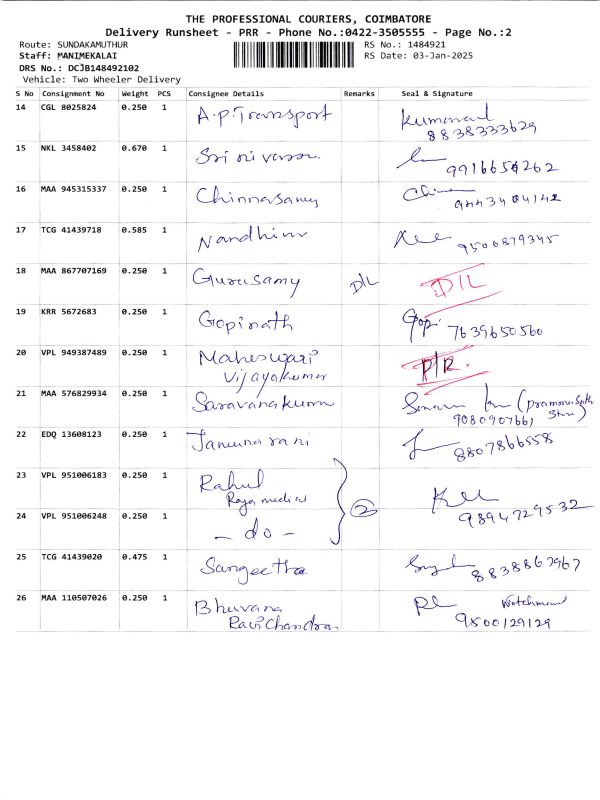 THE PROFESSIONAL COURIERS, COIMBATORE
Delivery Runsheet - PRR - Phone No.:0422-3505555 - Page No.:2
Route: SUNDAKAMUTHUR RS No.: 1484921
Staff: MANIMEKALAI RS Date: 03-Jan-2025
DRS No.: DCJB148492102
Vehicle: Two Wheeler Delivery
S No Consignment No Weight PCS Consignee Details Remarks Seal & Signature
14 CGL 8025824 0.250 1 A.P. Transport
8838333629
15 NKL 3458402 0.670 1 Srinivasan.
9916654262
16 MAA 945315337 0.250 1 Chinnasamy
9443404142
17 TCG 41439718 0.585 1 Nandhini
9500879345
18 MAA 867707169 0.250 1 Gurusamy D/L D/L
19 KRR 5672683 0.250 1 Gopinath Gopi
7639650560
20 VPL 949387489 0.250 1 Maheswari
Vijayakumar
21 MAA 576829934 0.250 1 Saravanakumar
9080907661
22 EDQ 13608123 0.250 1 Jamuna rani
8807866558
23 VPL 951006183 0.250 1 Rahul
Raja medical
2
9894729532
24 VPL 951006248 0.250 1 - do -
25 TCG 41439020 0.475 1 Sangeetha
8838867967
26 MAA 110507026 0.250 1 Bhuvana Watchman
Ravi Chandran 9500129129